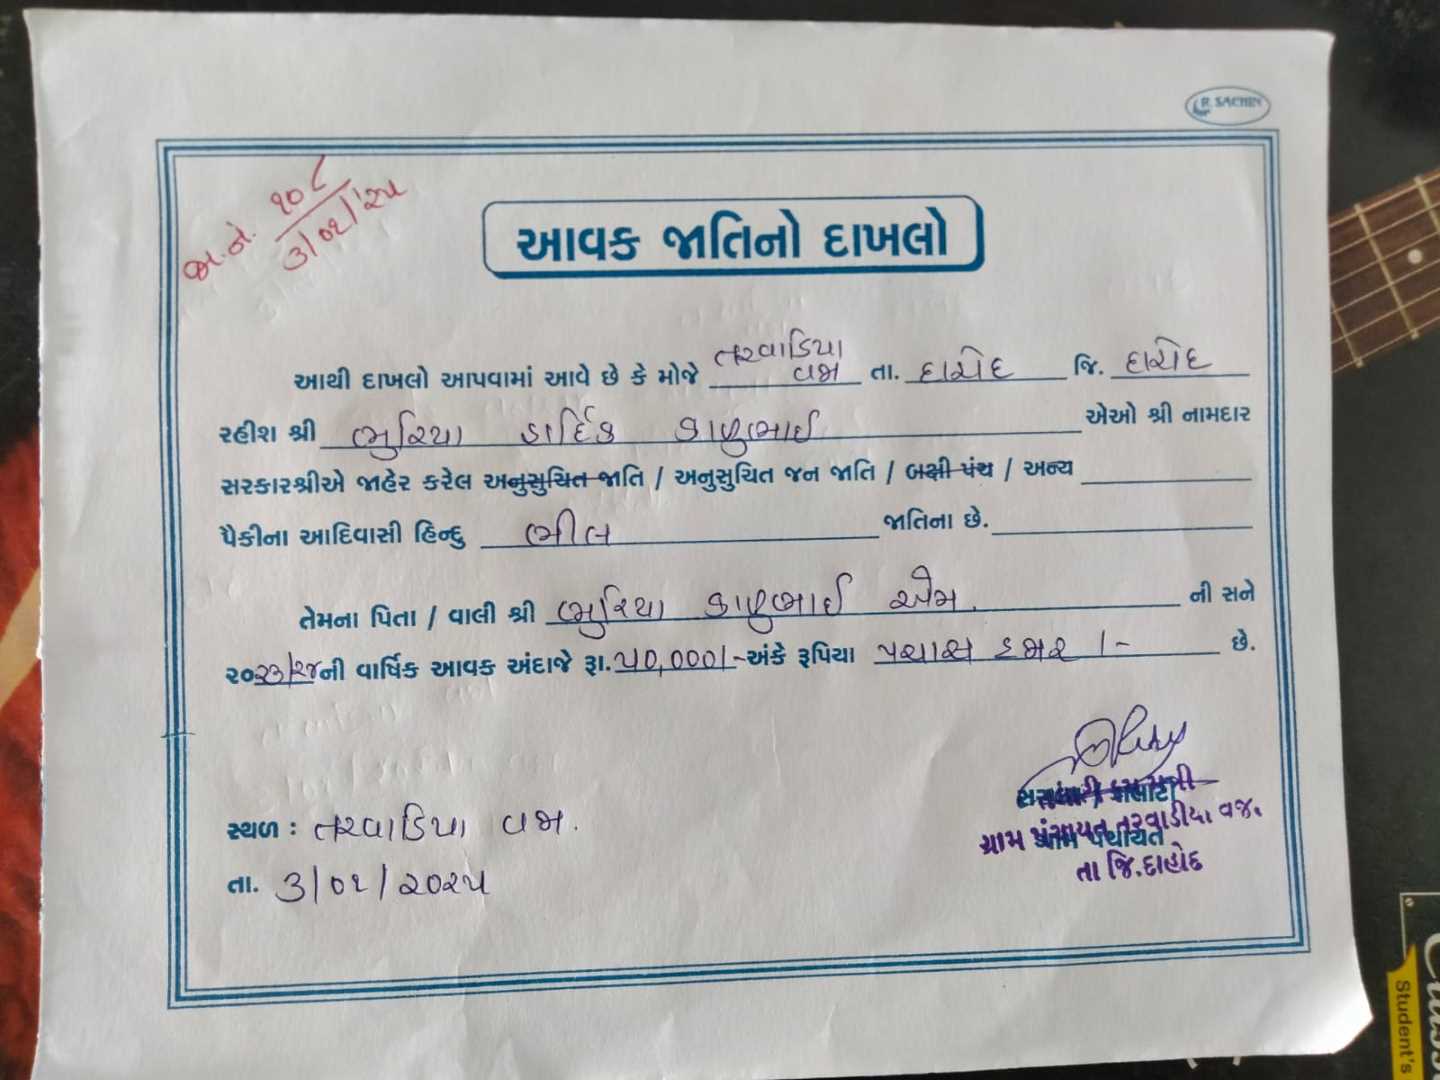 R. SACHIN
જા.નં. ૧૦૮
૩/૦૧/૨૫
આવક જાતિનો દાખલો
આથી દાખલો આપવામાં આવે છે કે મોજે તરવાડિયા વજા તા. દાહોદ જિ. દાહોદ
રહીશ શ્રી ભુરિયા હાર્દિક કાળુભાઈ એઓ શ્રી નામદાર
સરકારશ્રીએ જાહેર કરેલ અનુસુચિત જાતિ / અનુસુચિત જન જાતિ / બક્ષી પંચ / અન્ય
પૈકીના આદિવાસી હિન્દુ ભીલ જાતિના છે.
તેમના પિતા / વાલી શ્રી ભુરિયા કાળુભાઈ એમ. ની સને
૨૦૨૩/૨૪ની વાર્ષિક આવક અંદાજે રૂા. ૫૦,૦૦૦/- અંકે રૂપિયા પચાસ હજાર /- છે.
સ્થળ : તરવાડિયા વજા.
તા. ૩/૦૧/૨૦૨૫
ગ્રામ પંચાયત તરવાડીયા વજા
તા જિ.દાહોદ
Student's